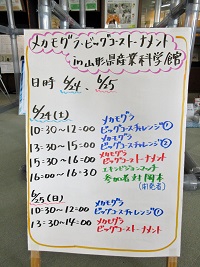 メカモグラ・ビッグコーストーナメント
in山形県産業科学館
日時 6/24、6/25
6/24(土)
10:30~12:00 メカモグラ ビッグコースチャレンジ①
13:30~15:00 メカモグラ ビッグコースチャレンジ②
15:30~16:00 メカモグラ ビッグコーストーナメント
16:00~16:30 エキシビジョンマッチ 参加者対岡本 (開発者)
6/25(日)
10:30~12:00 メカモグラ ビッグコースチャレンジ①
13:30~14:00 メカモグラ ビッグコーストーナメント